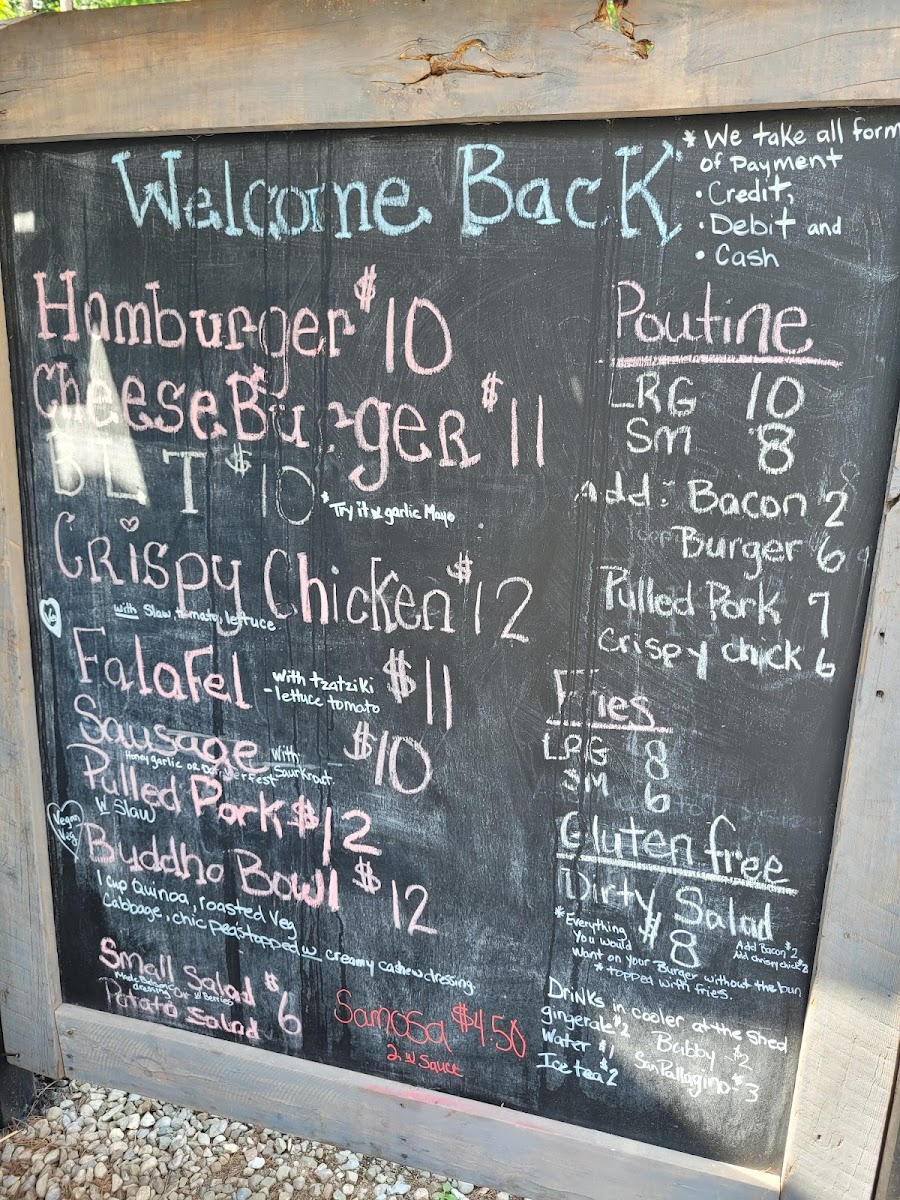 Welcome Back
* We take all form
of Payment
• Credit,
• Debit and
• Cash
Hamburger $10
CheeseBurger $11
BLT $10
* Try it w garlic Mayo
Crispy Chicken $12
with Slaw, tomato, lettuce
VG
Falafel $11
- with tzatziki
- lettuce tomato
Sausage with $10
Honey garlic OR Saurkrout.
Pulled Pork $12
W Slaw
Vegan
Veg
Buddha Bowl $12
1 cup Quinoa, roasted Veg
Cabbage, chic peas topped w creamy cashew dressing.
Small Salad $6
dressing W Berries
Potato Salad
Samosa $4.50
2 w Sauce
Poutine
LRG 10
SM 8
Add: Bacon 2
Burger 6
Pulled Pork 7
Crispy chick 6
Fries
LRG 8
SM 6
Gluten free
Dirty Salad
$8
* Everything
You would
Want on your Burger without the bun
* topped with fries.
Add Bacon $2
Add chrispy chick $2
Drinks in cooler at the shed
gingerale $2
Water $1
Ice tea $2
Bubby $2
San Pallagino $3